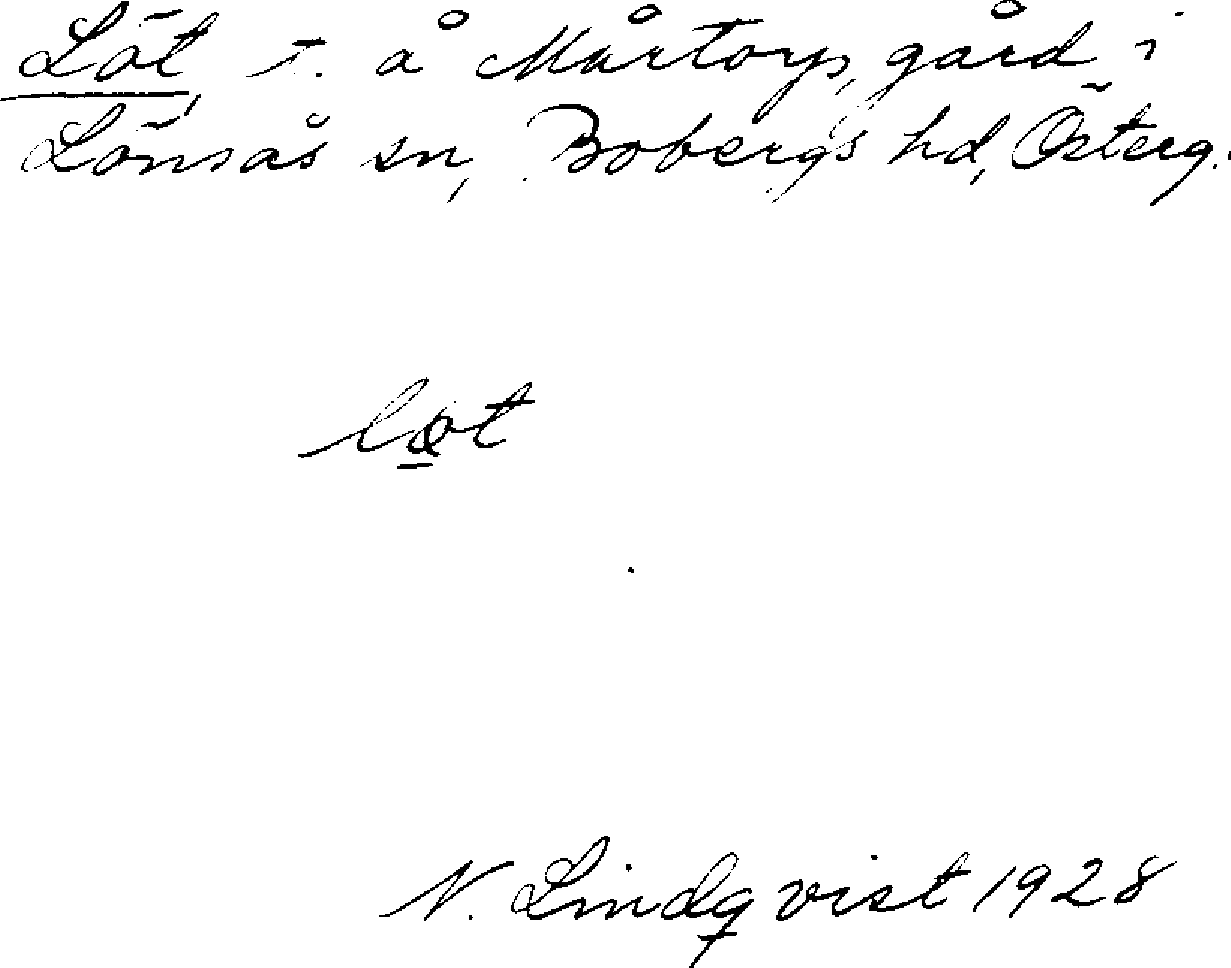 Löt, t. å Mårtorp, gård i
Lönsås sn, Bobergs hd, Österg.
løt
N. Lindqvist 1928